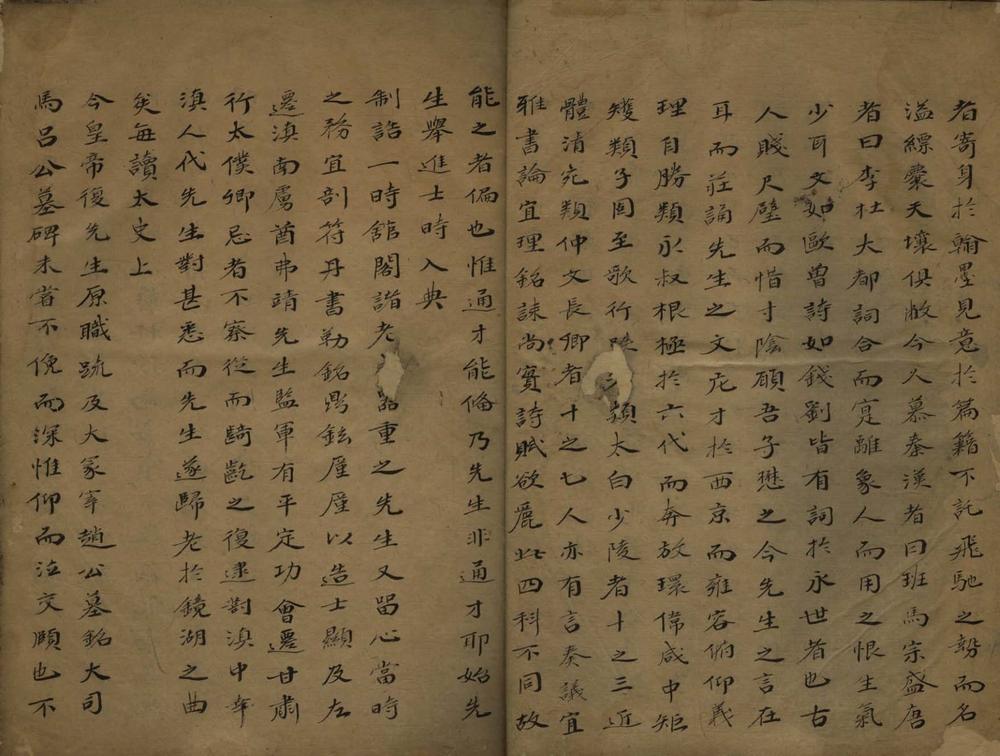 者寄身於翰墨見意於篇籍不託飛馳之勢而名
溢縹囊天壤俱敝今人慕秦漢者曰班馬宗盛唐
者曰李杜大都詞合而寔離象人而用之恨生氣
少耳文如歐曾詩如錢劉皆有詞於永世者也古
人賤尺璧而惜寸陰願吾子懋之今先生之言在
耳而莊誦先生之文庀才於西京而雍容俯仰義
理自勝類永叔根極於六代而奔放環偉咸中矩
矱類子固至歌行類太白少陵者十之三近
體清宛類仲文長卿者十之七人亦有言奏議宜
雅書論宜理銘誄尚實詩賦欲麗此四科不同故
能之者偏也惟通才能俻乃先生非通才耶始先
生舉進士時入典
制誥一時舘閣諧老器重之先生又畱心當時
之務宜剖符丹書勒銘鼎鉉厪厪以造士顯及左
遷滇南屬酋弗靖先生監軍有平定功會遷甘肅
行太僕卿忌者不察從而齮齕之復逮對滇中幸
滇人代先生對甚悉而先生遂歸老於鏡湖之曲
矣每讀太史上
今皇帝復先生原職疏及大冢宰趙公墓銘大司
馬呂公墓碑未嘗不俛而深惟仰而泣交頤也不